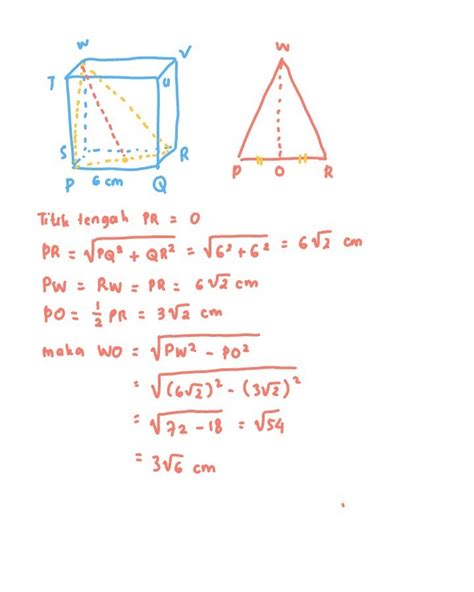 W
V
T
U
S
R
P
6 cm
Q
W
P
O
R
Titik tengah PR = O
PR = √(PQ² + QR²) = √(6² + 6²) = 6√2 cm
PW = RW = PR = 6√2 cm
PO = 1/2 PR = 3√2 cm
maka WO = √(PW² - PO²)
= √((6√2)² - (3√2)²)
= √(72 - 18) = √54
= 3√6 cm